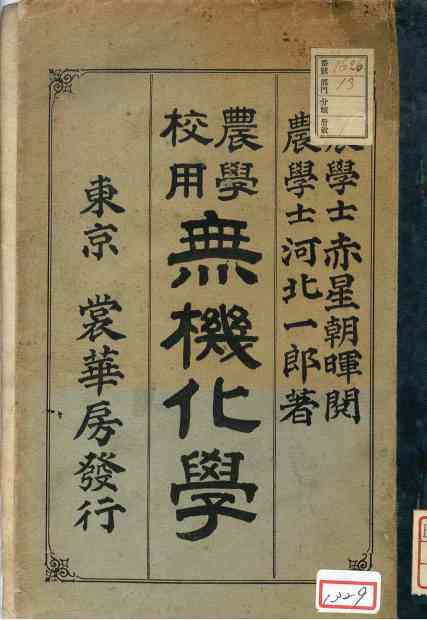 農學士 赤星朝暉閲
農學士 河北一郎著
農學校用 無機化學
東京 裳華房發行
番號 1326
部門 13
分類
冊數 1
1329